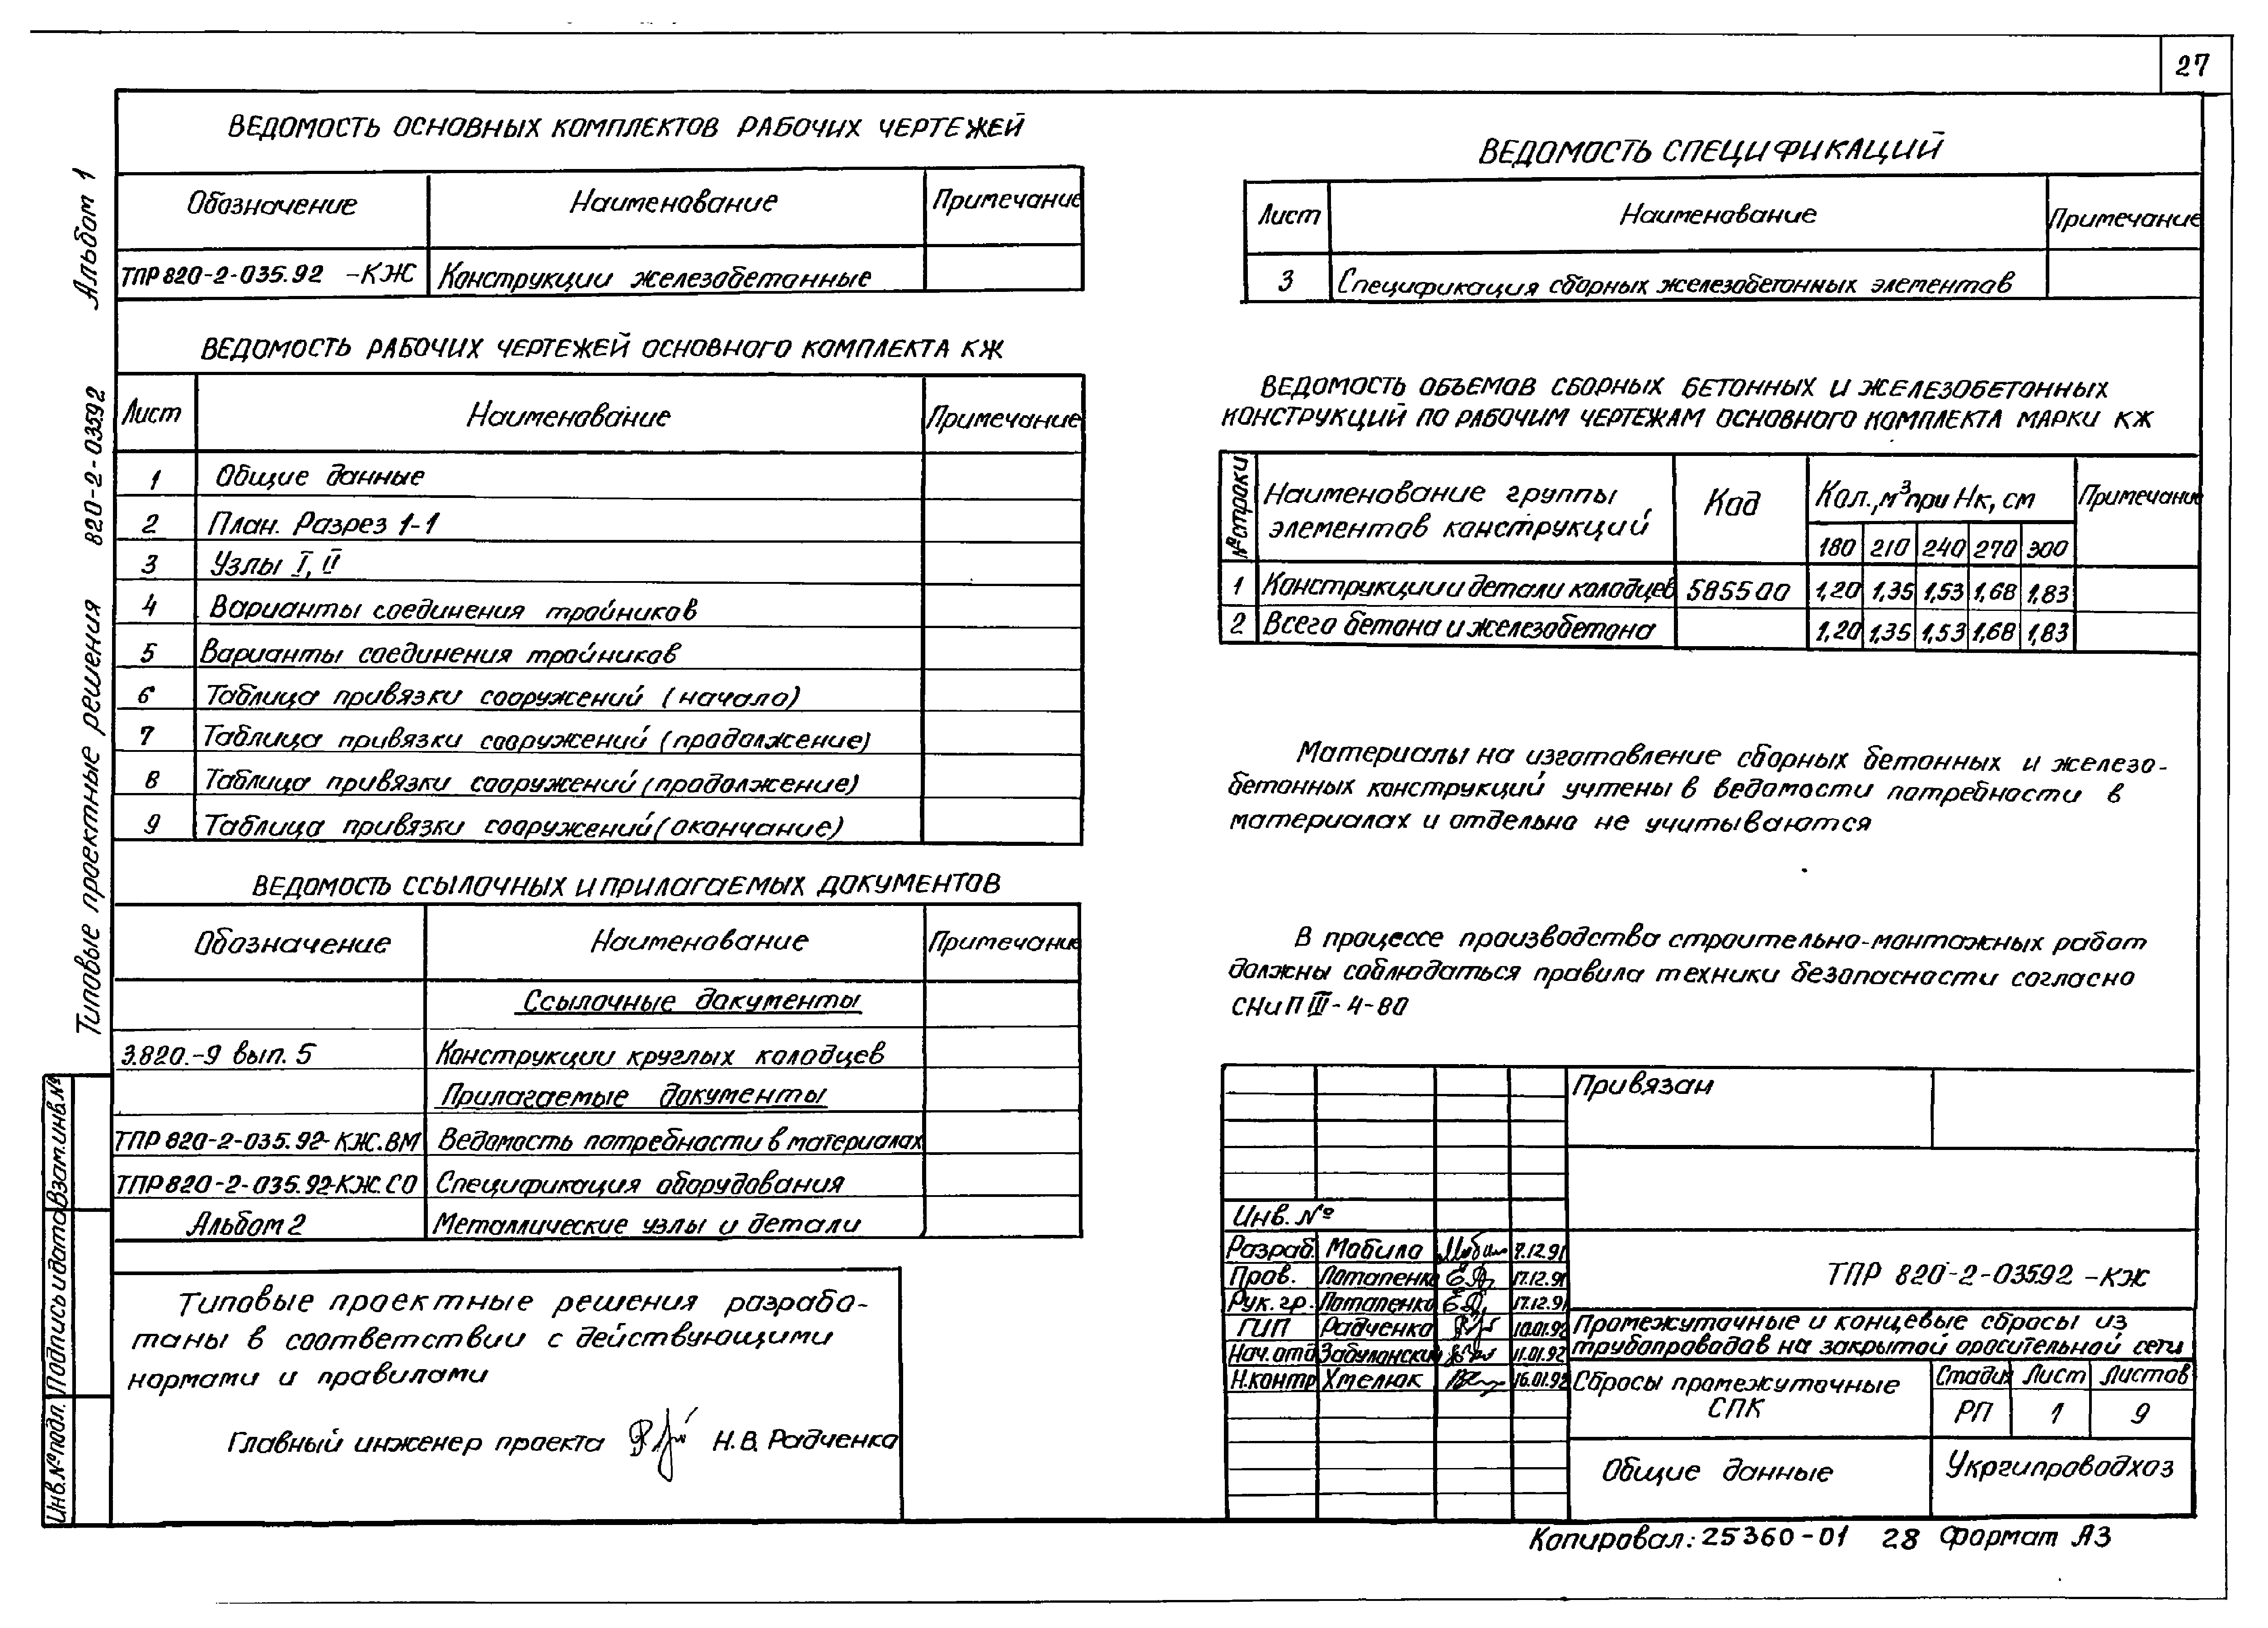 27
Альбом 1
820-2-035.92
Типовые проектные решения
Взам.инв.№
Подпись и дата
Инв.№ подл.
ВЕДОМОСТЬ ОСНОВНЫХ КОМПЛЕКТОВ РАБОЧИХ ЧЕРТЕЖЕЙ
Обозначение Наименование Примечание
ТПР 820-2-035.92 -КЖ Конструкции железобетонные
ВЕДОМОСТЬ РАБОЧИХ ЧЕРТЕЖЕЙ ОСНОВНОГО КОМПЛЕКТА КЖ
Лист Наименование Примечание
1 Общие данные
2 План. Разрез 1-1
3 Узлы I, II
4 Варианты соединения тройников
5 Варианты соединения тройников
6 Таблица привязки сооружений (начало)
7 Таблица привязки сооружений (продолжение)
8 Таблица привязки сооружений (продолжение)
9 Таблица привязки сооружений (окончание)
ВЕДОМОСТЬ ССЫЛОЧНЫХ И ПРИЛАГАЕМЫХ ДОКУМЕНТОВ
Обозначение Наименование Примечание
Ссылочные документы
3.820.-9 вып. 5 Конструкции круглых колодцев
Прилагаемые документы
ТПР 820-2-035.92-КЖ.ВМ Ведомость потребности в материалах
ТПР 820-2-035.92-КЖ.СО Спецификация оборудования
Альбом 2 Металлические узлы и детали
Типовые проектные решения разрабо-
таны в соответствии с действующими
нормами и правилами
Главный инженер проекта Н.В. Радченко
ВЕДОМОСТЬ СПЕЦИФИКАЦИЙ
Лист Наименование Примечание
3 Спецификация сборных железобетонных элементов
ВЕДОМОСТЬ ОБЪЕМОВ СБОРНЫХ БЕТОННЫХ И ЖЕЛЕЗОБЕТОННЫХ
КОНСТРУКЦИЙ ПО РАБОЧИМ ЧЕРТЕЖАМ ОСНОВНОГО КОМПЛЕКТА МАРКИ КЖ
№ строки Наименование группы элементов конструкций Код Кол., м³ при Нк, см Примечание
180 210 240 270 300
1 Конструкции и детали колодцев 585500 1,20 1,35 1,53 1,68 1,83
2 Всего бетона и железобетона 1,20 1,35 1,53 1,68 1,83
Материалы на изготовление сборных бетонных и железо-
бетонных конструкций учтены в ведомости потребности в
материалах и отдельно не учитываются
В процессе производства строительно-монтажных работ
должны соблюдаться правила техники безопасности согласно
СНиП III-4-80
Привязан
Инв. №
Разраб. Мобило 7.12.91
Пров. Потапенко 17.12.91
Рук. гр. Потапенко 17.12.91
ГИП Радченко 10.01.92
Нач. отд Забуланский 11.01.92
Н.контр Хмелюк 16.01.92
ТПР 820-2-035.92 -КЖ
Промежуточные и концевые сбросы из
трубопроводов на закрытой оросительной сети
Сбросы промежуточные
СПК
Стадия Лист Листов
РП 1 9
Общие данные
Укргипроводхоз
Копировал: 25360-01 28 Формат А3